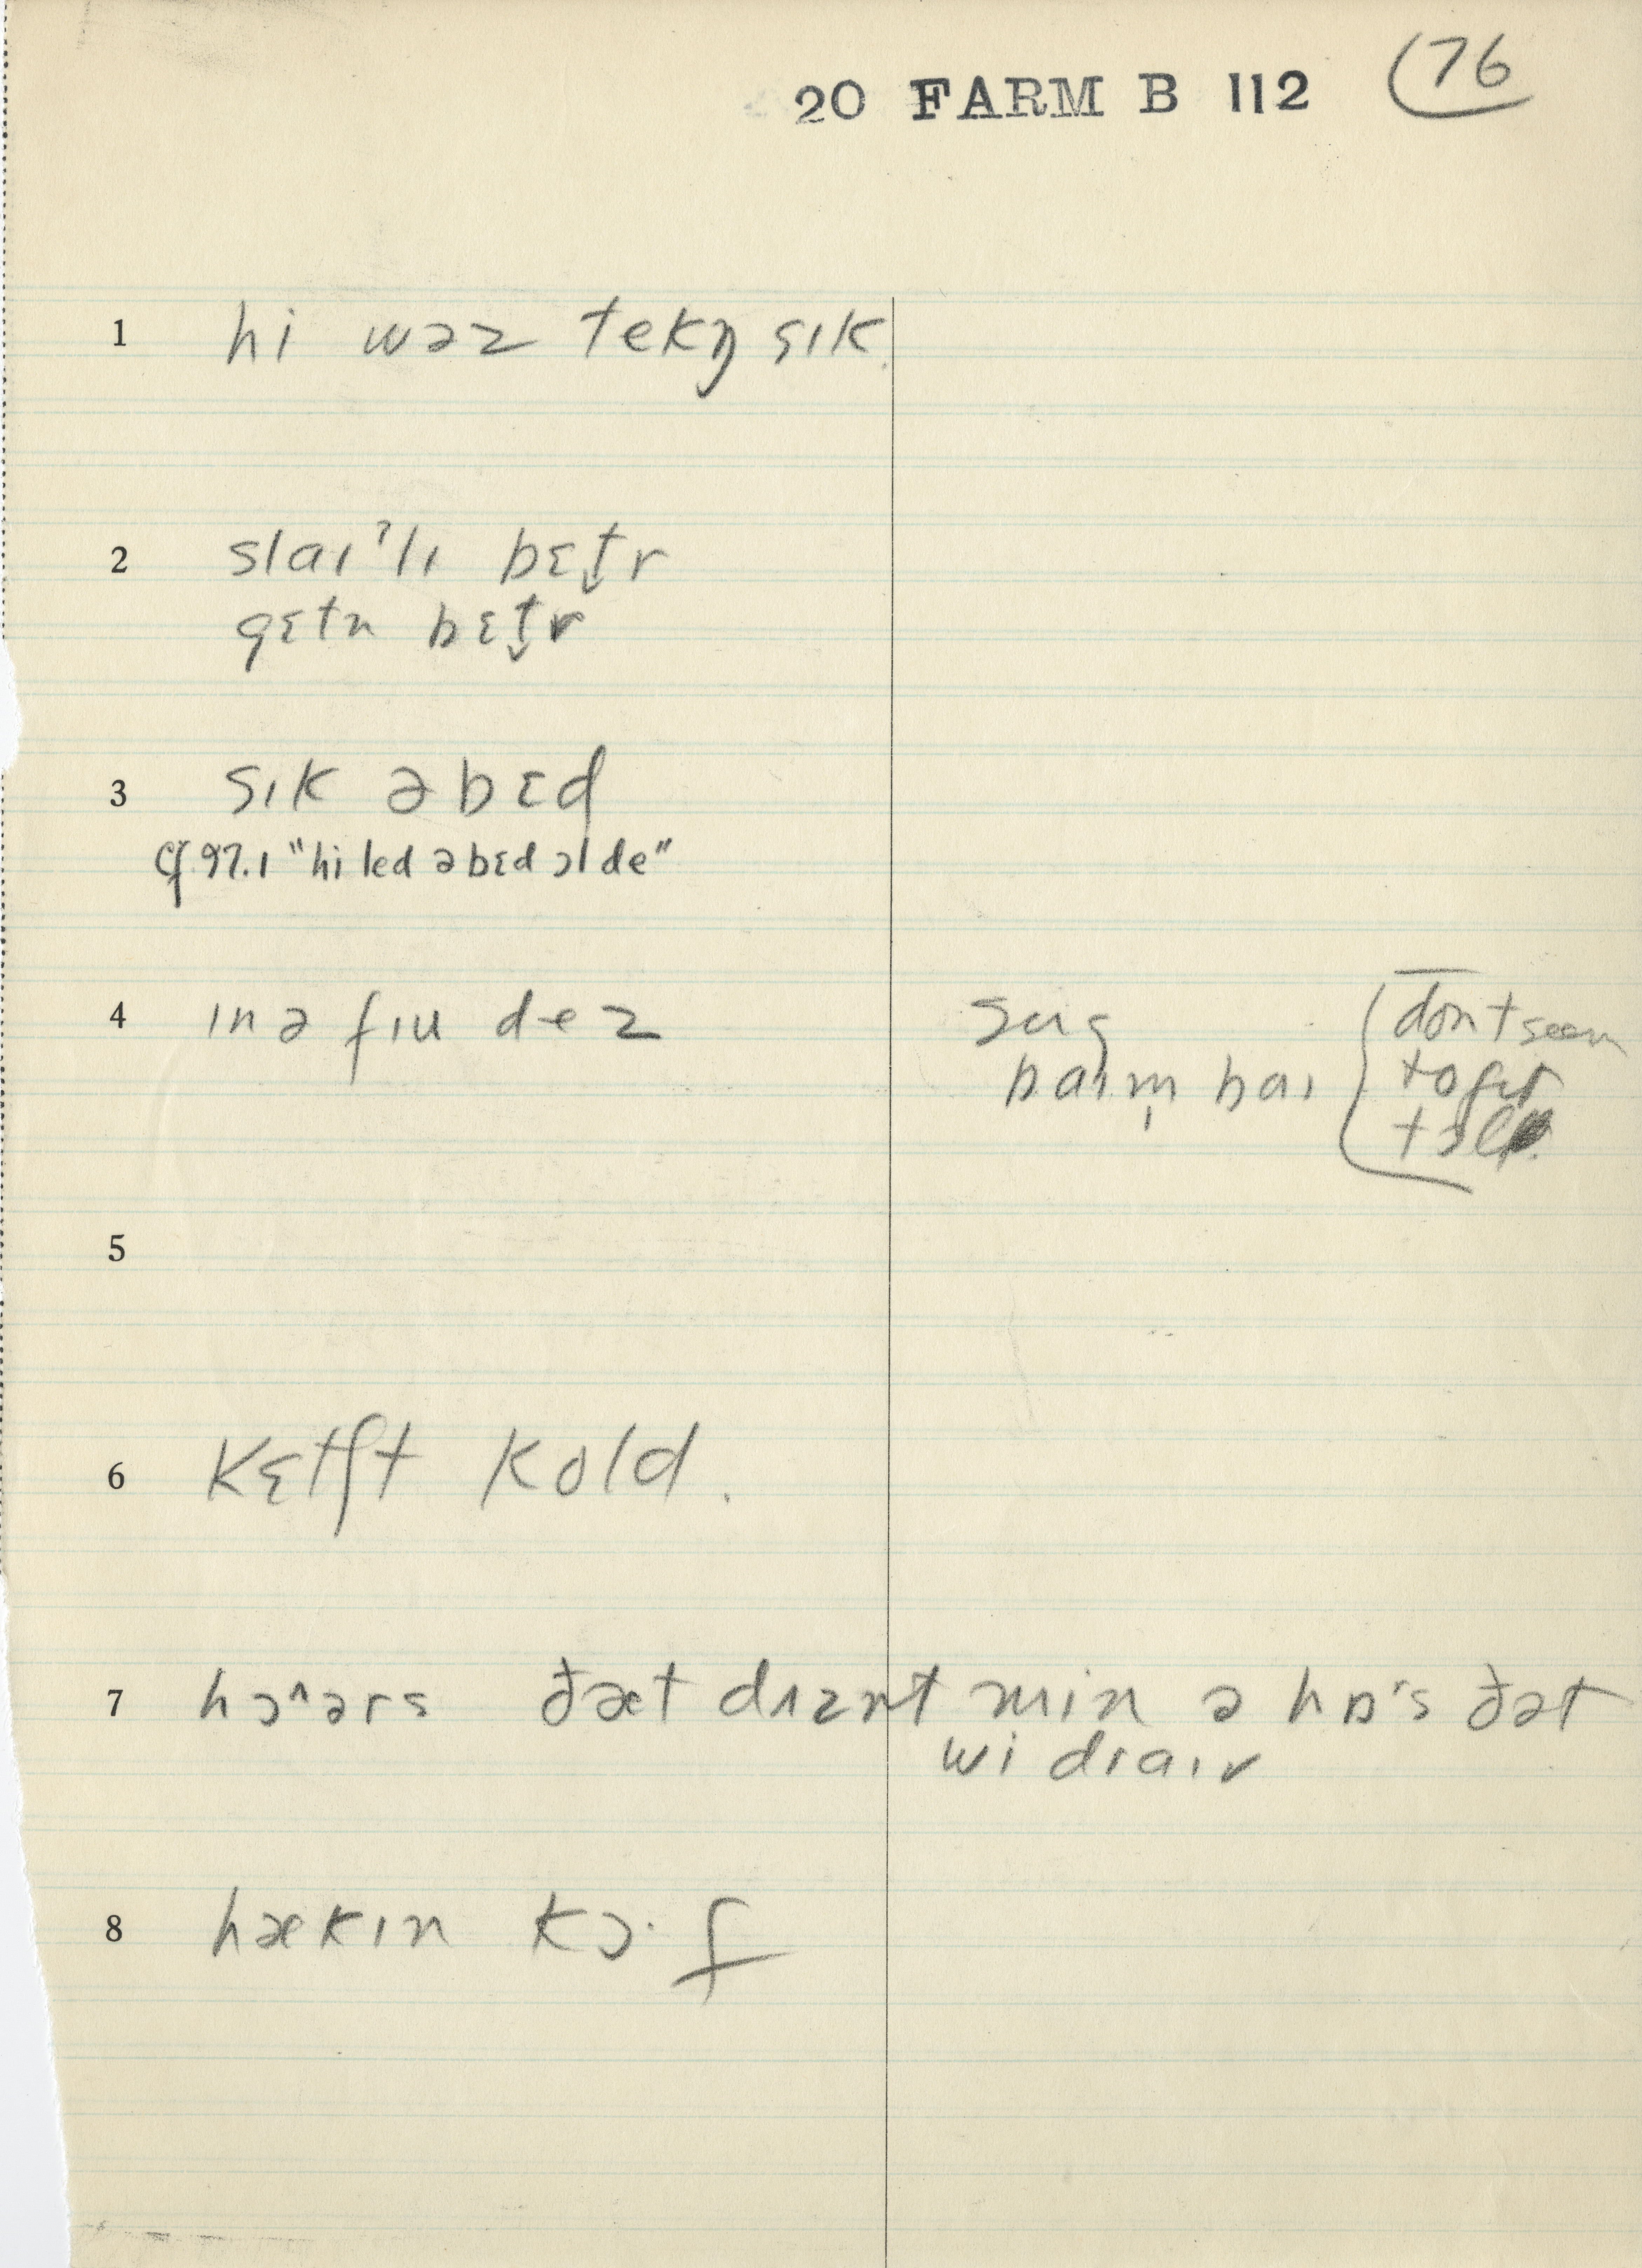 20 FARM B 112 (76
1 hi wəz tekŋ sɪk.
2 slaɪˀlɪ bɛt̬r
gɛtn bɛt̬r
3 sɪk əbɛd
cf. 97.1 "hi led əbɛd ɔl de"
4 ɪn ə fɪu dez
baɪm̩ baɪ
don't seem
to get
5
6 kɛtʃt kold.
7 hɔ^ərs ðæt dʌznt min ə hɒ's ðət
wi draɪv
8 hækɪn kɔ·f